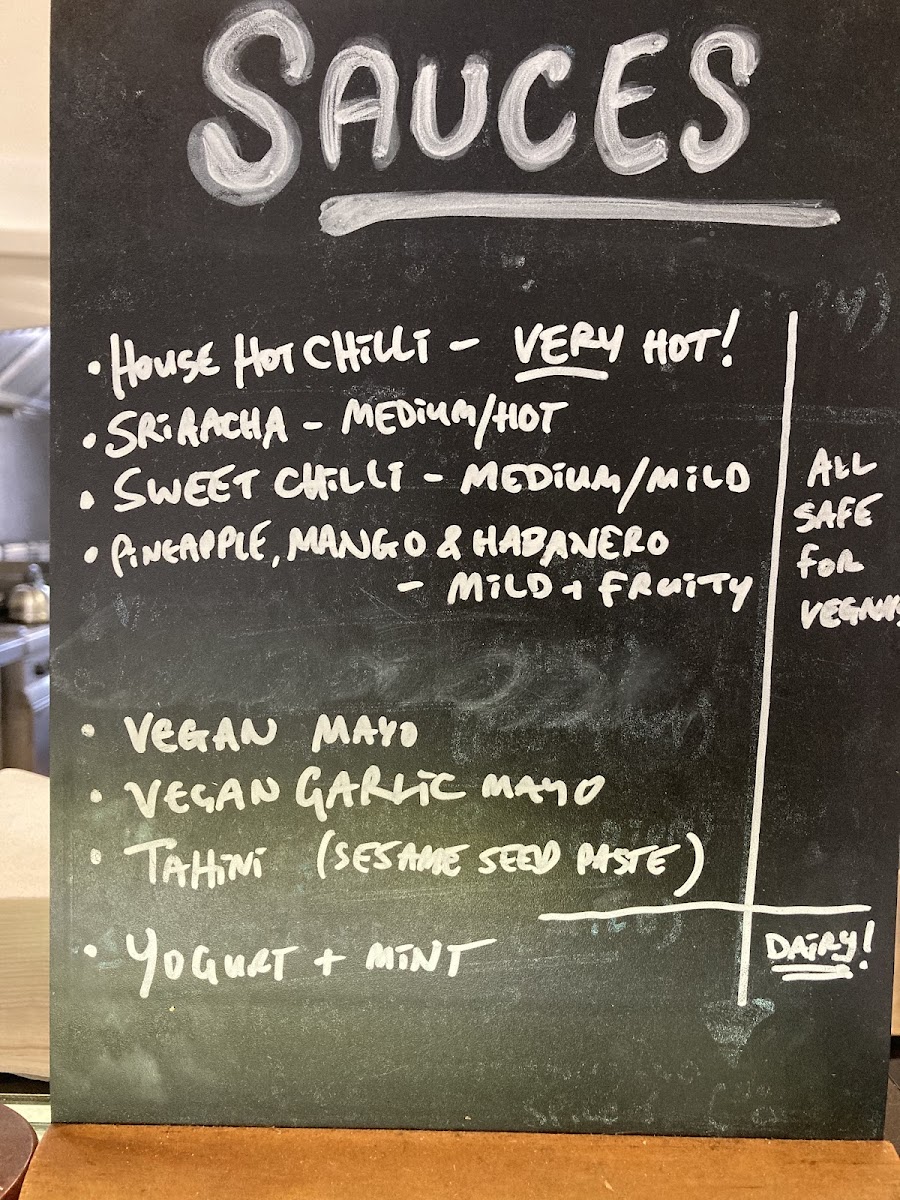 SAUCES
• HOUSE HOT CHILLI - VERY HOT!
• SRIRACHA - MEDIUM/HOT
• SWEET CHILLI - MEDIUM/MILD
• PINEAPPLE, MANGO & HABANERO
- MILD + FRUITY
ALL
SAFE
FOR
VEGANS
• VEGAN MAYO
• VEGAN GARLIC MAYO
• TAHINI (SESAME SEED PASTE)
• YOGURT + MINT
DAIRY!